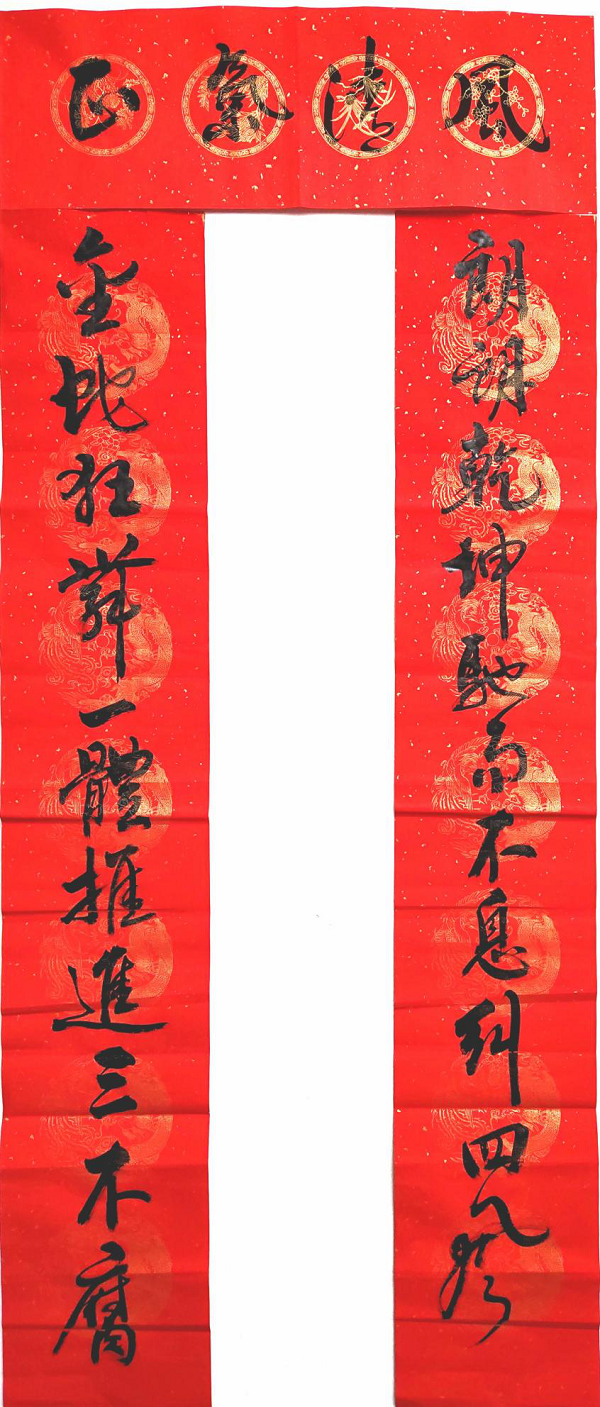 風清氣正
朗朗乾坤馳而不息糾四風
金蛇狂舞一體推進三不腐